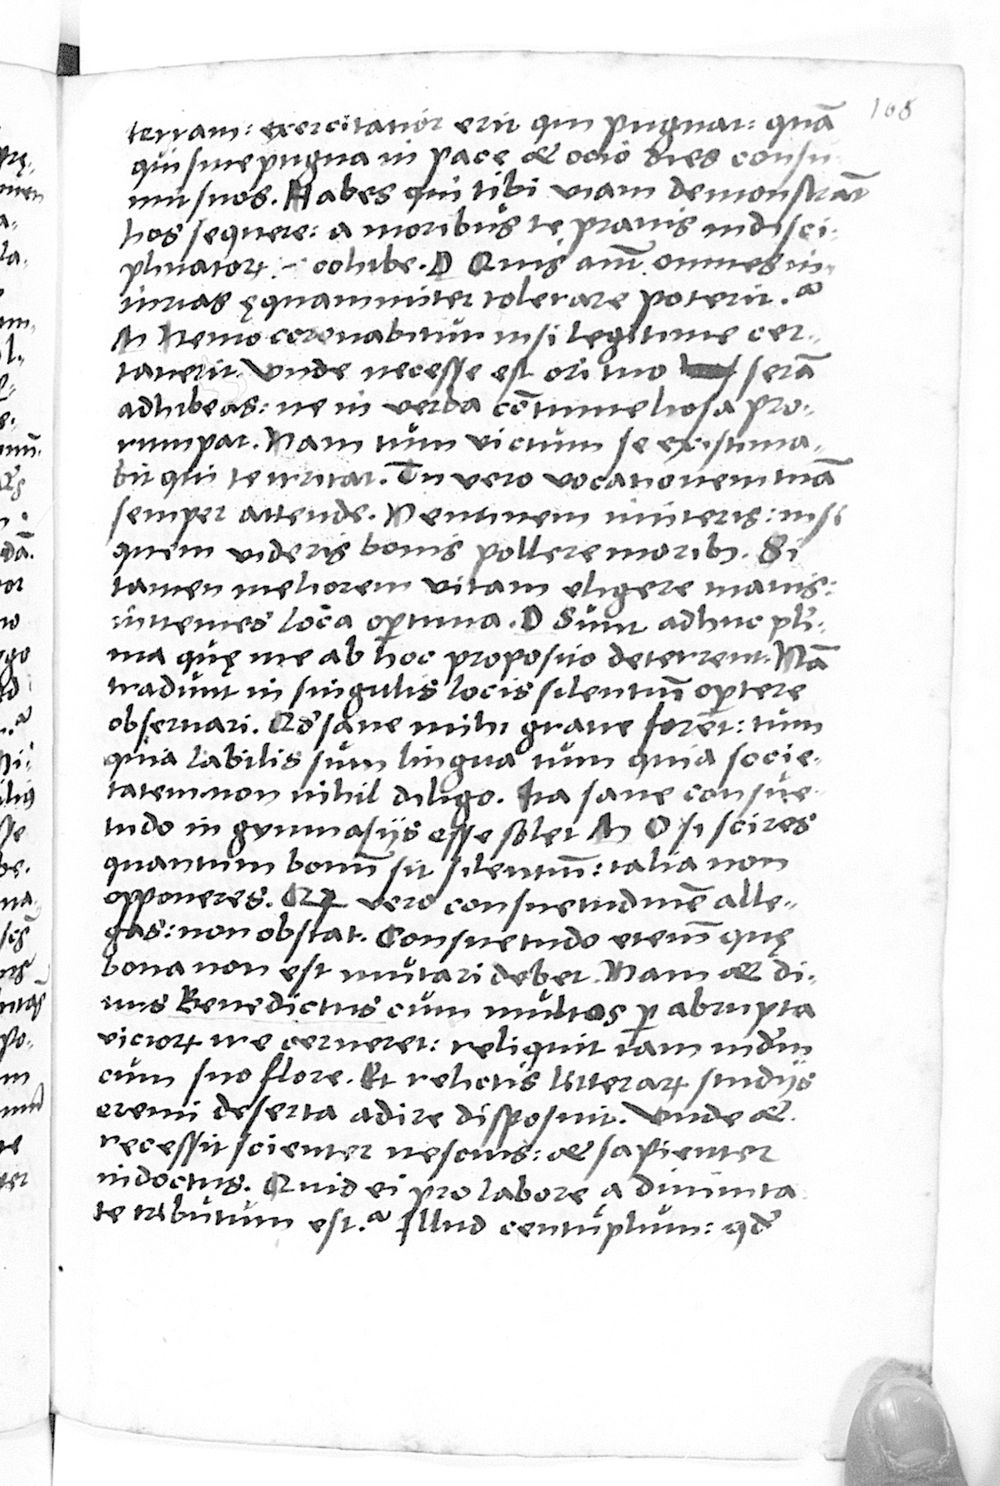 168
terram: exercitatior erit qui pugnat: quā
qui sine pugna in pace & ocio dies consu-
mit suos. Habes qui tibi viam demonstrāt
hos sequere: a moribus te pravis indisci-
plinatorꝝ - cohibe. D Quis aūt omnes in-
iurias ęquanimiter tolerare poterit.?
M Nemo coronabitur nisi legitime cer-
taverit. Unde necesse est ori tuo serā
adhibeas: ne in verba cōtumeliosa pro-
rumpat. Nam tum victum se existima-
bit qui te irritat. Tu vero vocationem tuā
semper attende. Neminem imiteris: nisi
quem videris bonis pollere moribꝫ. Si
tamen meliorem vitam eligere mavis:
invenies loca optima. D Sunt adhuc pli-
ma quę me ab hoc proposito deterrent. Nā
tradunt in singulis locis silentiū oꝑtere
observari. Qđ sane mihi grave foret: tum
quia labilis sum lingua tum quia socie-
tatem non nihil diligo. Ita sane consue-
tudo in gymnasijs esse solet M O si scires
quantum bonū sit silentiū: talia non
opponeres. Qꝫ vero consuetudinē alle-
gas: non obstat. Consuetudo etenī quę
bona non est mutari debet. Nam & di-
vus Benedictus cum multos ꝑ abrupta
viciorꝝ ire cerneret: reliquit iam mūdū
cum suo flore. Et relictis litterarꝝ studijs
eremi deserta adire disposuit. Unde &
recessit scienter nescius: & sapienter
indoctus. Quid ei pro labore a divinita
te tributum est.? Illud centuplum: qđ